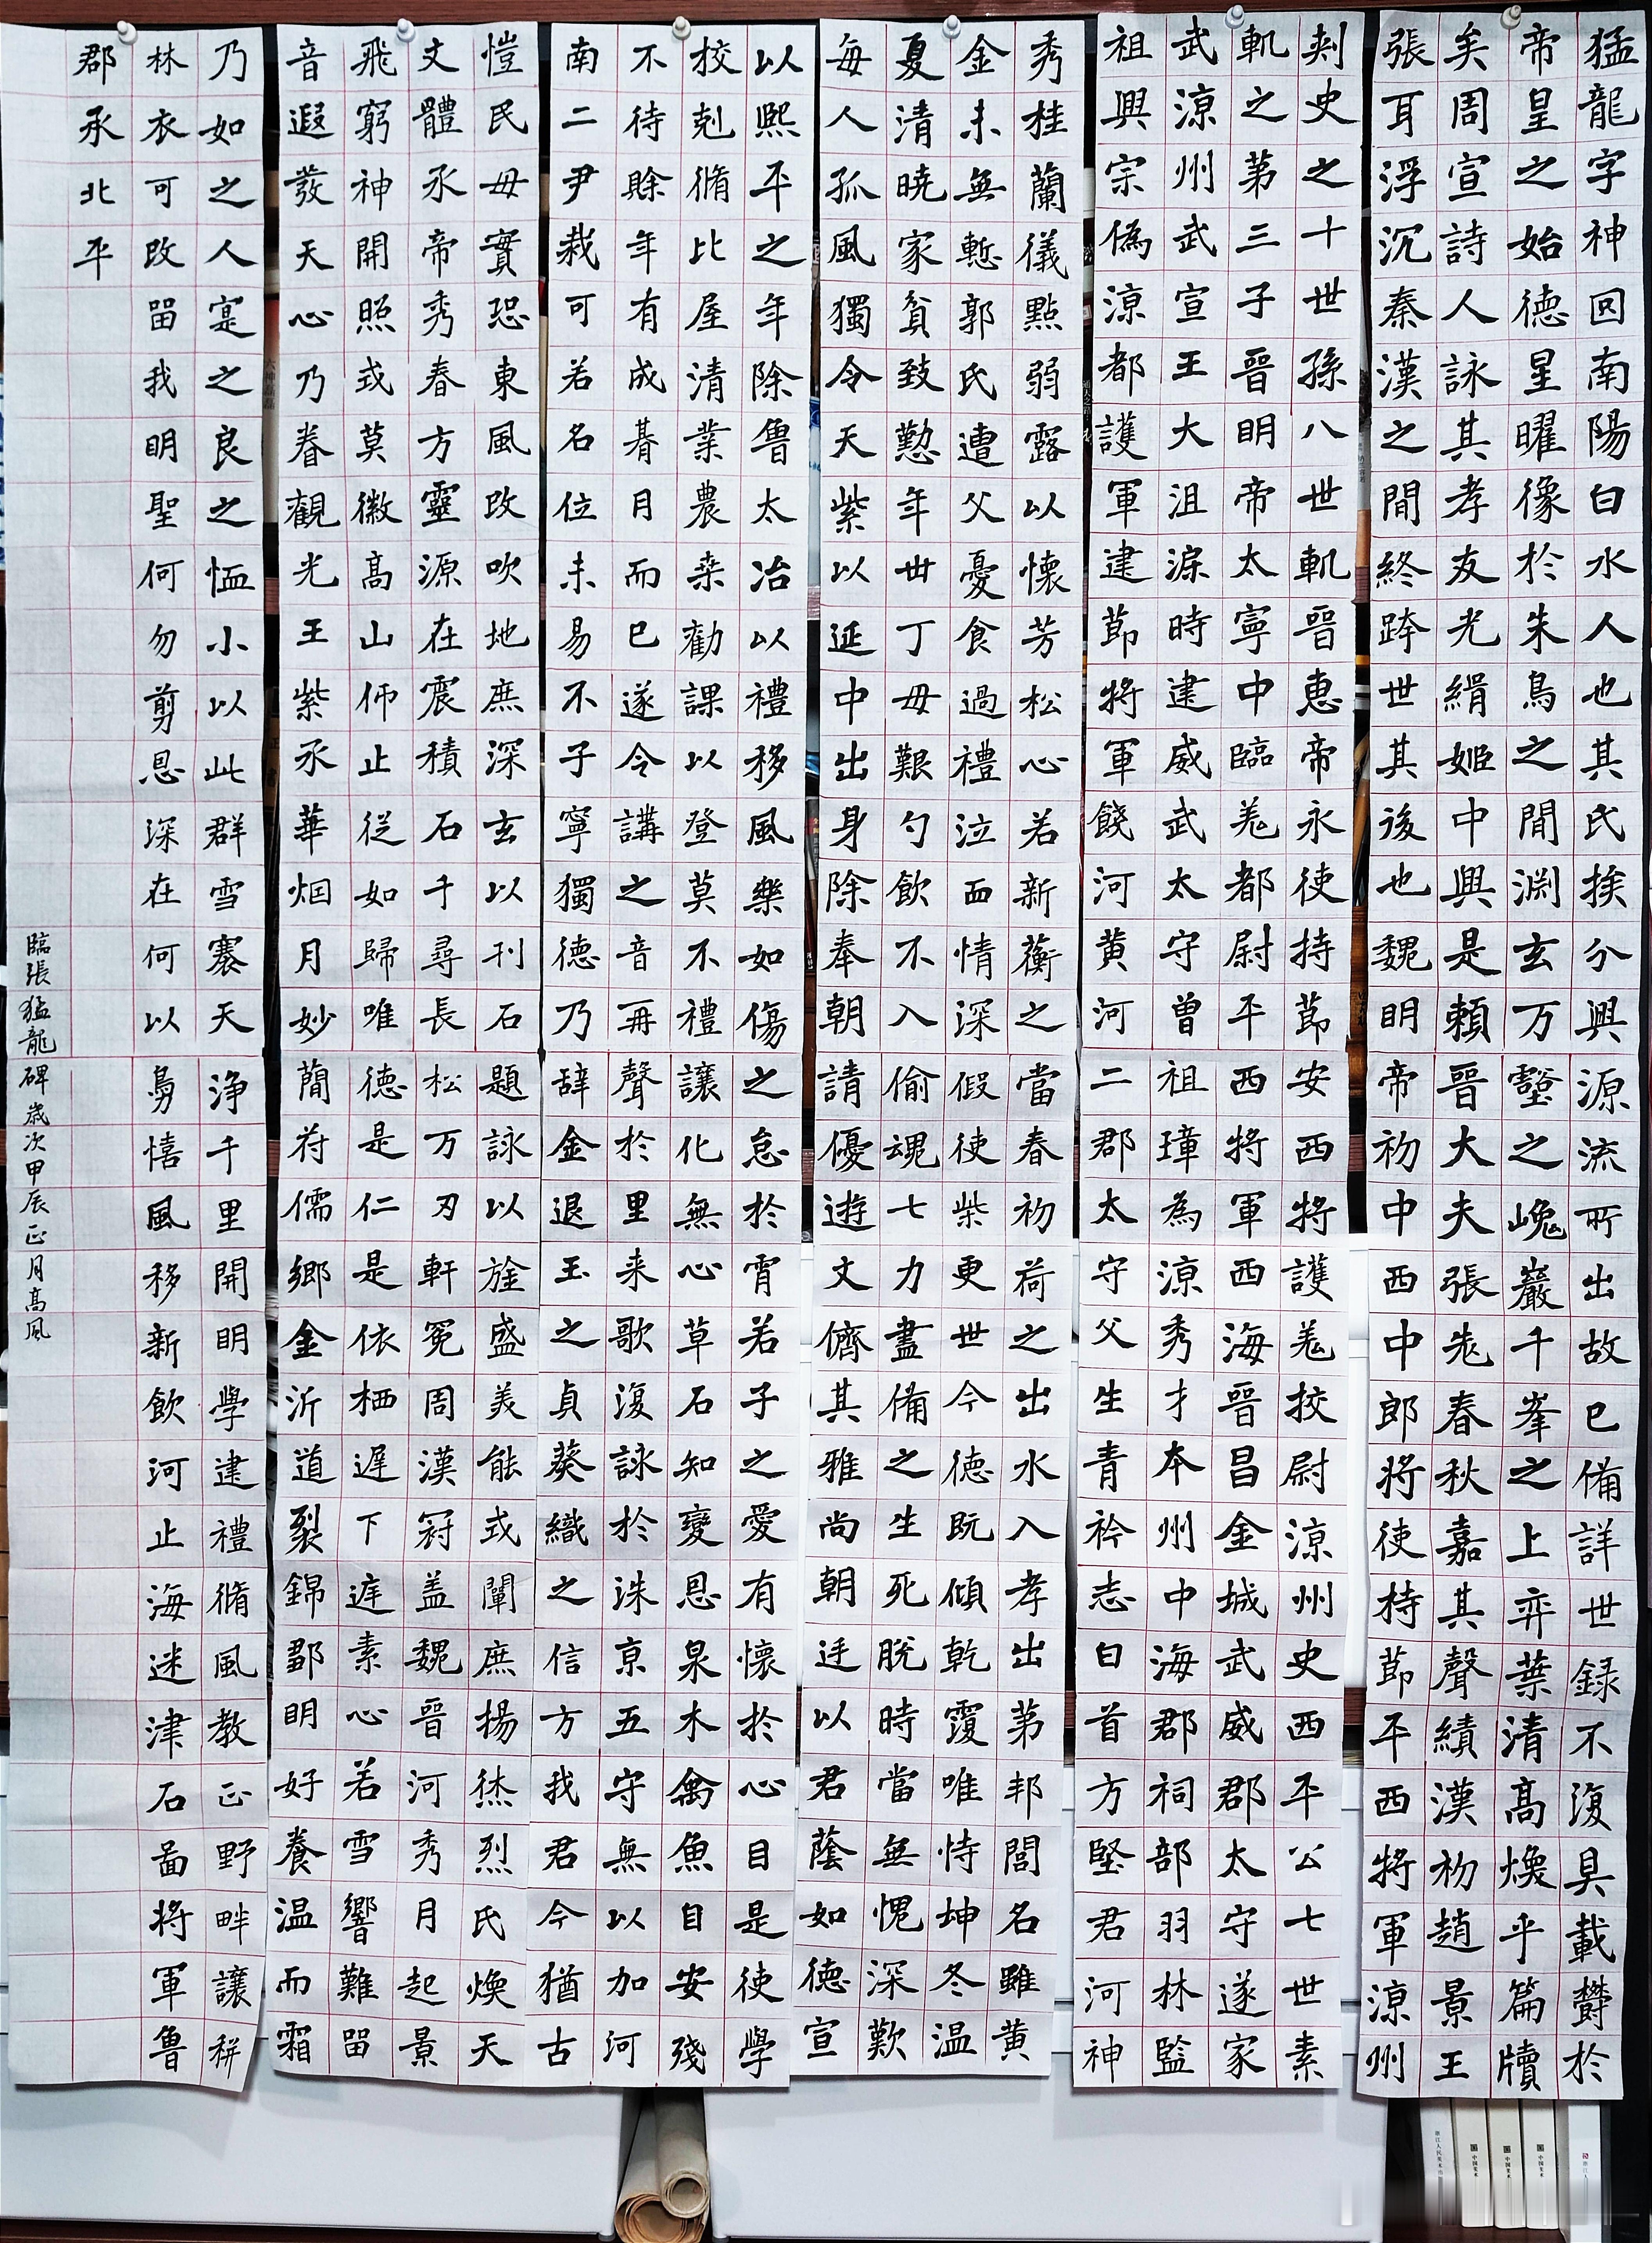 猛龍字神囙南陽白水人也其氏挨分興源流所出故已備詳世録不復具載欝於
帝皇之始德星曜像於朱鳥之閒淵玄万壑之巍巖千峯之上弈葉清高煥乎篇牘
矣周宣詩人詠其孝友光緝姬中興是賴晉大夫張老春秋嘉其聲績漢初趙景王
張耳浮沉秦漢之間終跨世其後也魏明帝初中西中郎將使持節平西將軍涼州
刾史之十世孫八世軌晉惠帝永使持節安西將護羌挍尉涼州史西平公七世素
軌之第三子晉明帝太寧中臨羌都尉平西將軍西海晉昌金城武威郡太守遂家
武涼州武宣王大沮渠時建威武太守曾祖璋為涼秀才本州中海郡祠部羽林監
祖興宗偽涼都護軍建節將軍饒河黄河二郡太守父生青衿志白首方堅君河神
秀桂蘭儀點弱露以懷芳松心若新蘅之當春初荷之出水入孝出第邦閭名雖黄
金未無慙郭氏遭父憂食過禮泣面情深假使柴更世今德既傾乾覆唯恃坤冬温
夏清曉家貧致懃年丗丁毋艱勺飲不入偷魂七力盡備之生死脫時當無愧深歎
每人孤風獨令天紫以延中出身除奉朝請優遊文儕其雅尚朝廷以君蔭如德宣
以熙平之年除魯太治以禮移風樂如傷之怠於霄若子之愛有懷於心目是使學
校剋脩比屋清業農桒勸課以登莫不禮讓化無心草石知變恩泉木禽魚自安殘
不待賒年有成朞月而已遂令講之音再聲於里来歌復詠於洙京五守無以加河
南二尹裁可若名位未易不子寧獨德乃辞金退玉之貞葵織之信方我君今猶古
愷民毋實恐東風改吹地庶深玄以刊石題詠以旌盛美能或闡庶揚烋烈氏煥天
文體承帝秀春方靈源在震積石千尋長松万刃軒冕周漢冠盖魏晉河秀月起景
飛窮神開照或莫徽高山仰止從如歸唯德是仁是依栖遲下遅素心若雪響難留
音遐發天心乃眷觀光王紫承華烟月妙簡苻儒鄉金沂道裂錦鄒明好養温而霜
乃如之人寔之良之恤小以此群雪褰天浄千里開明學建禮脩風教正野畔讓耕
林衣可改留我明聖何勿剪恩深在何以勗憘風移新飲河止海迷津石啚將軍魯
郡承北平
臨張猛龍碑歲次甲辰正月高风